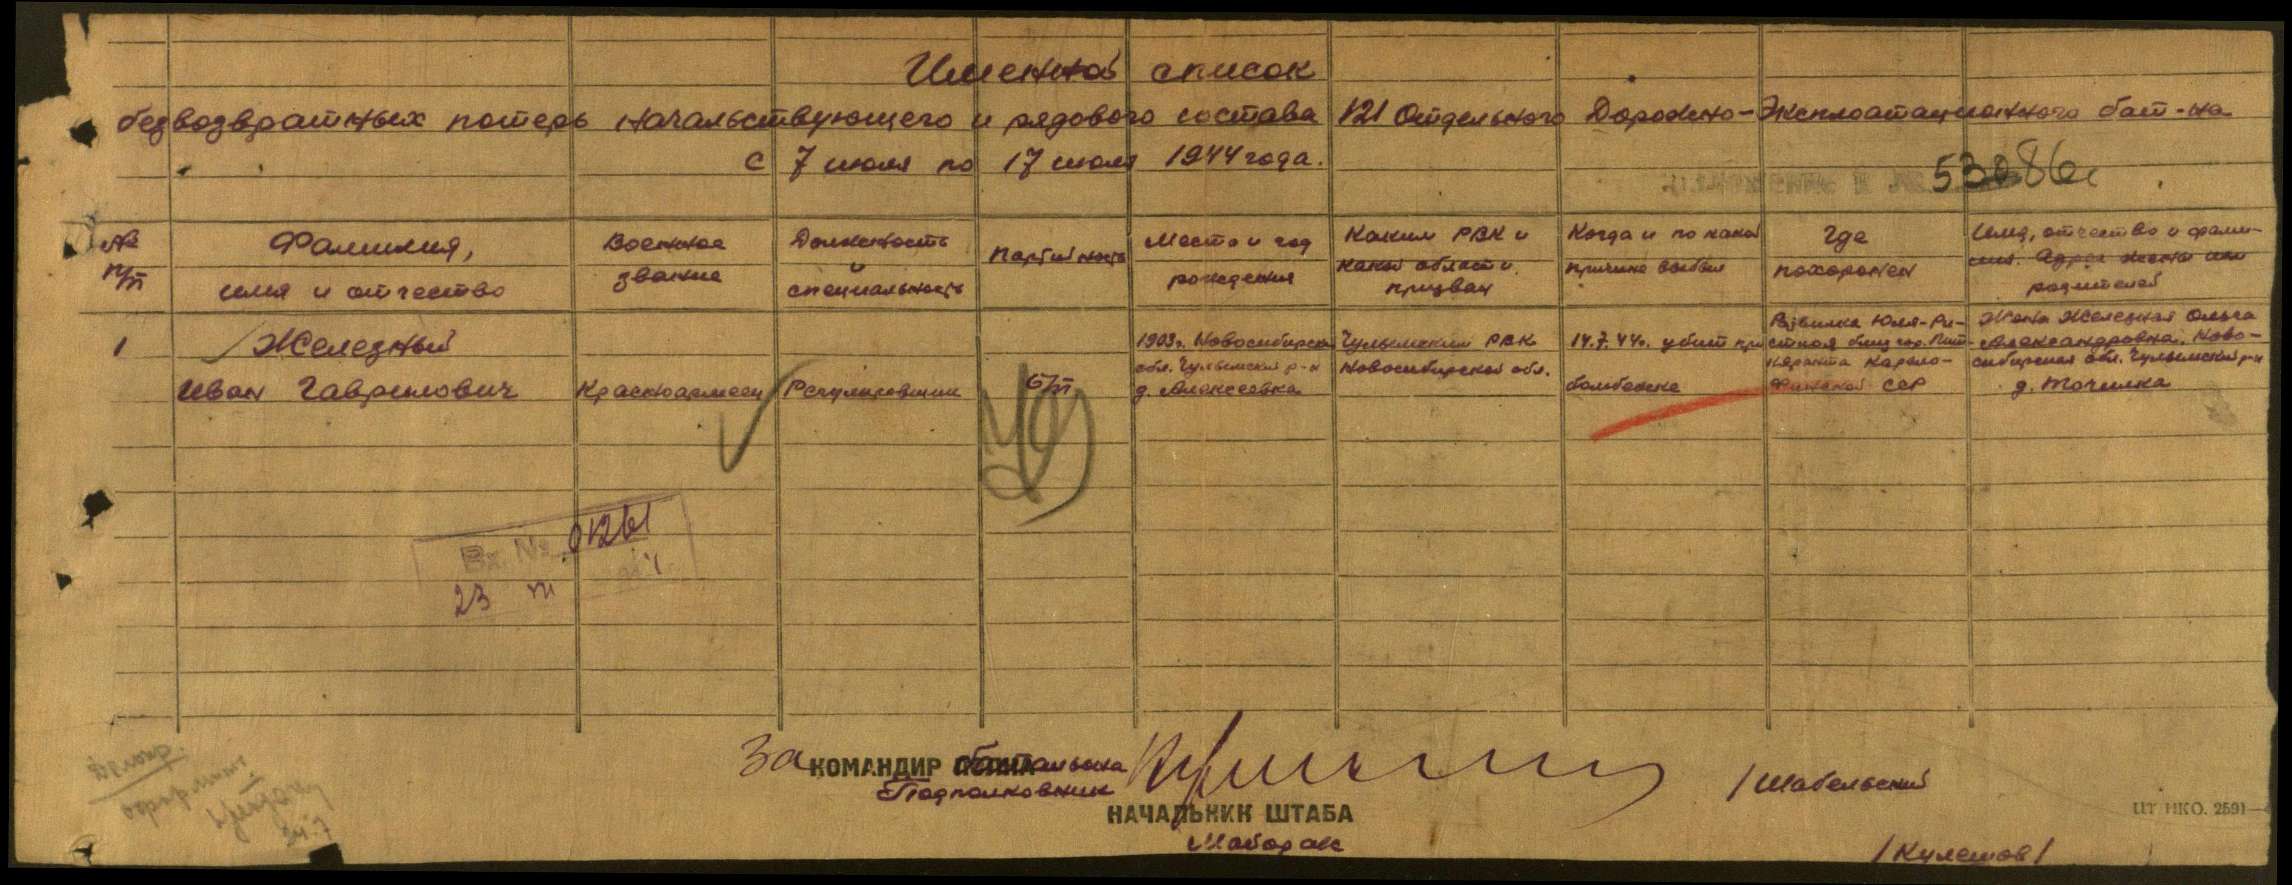 Именной список
безвозвратных потерь начальствующего и рядового состава 121 Отдельного Дорожно-Эксплоатационного бат-на
с 7 июля по 17 июля 1944 года.
53086с
№ п/п
Фамилия, имя и отчество
Военное звание
Должность и специальность
Партийность
Место и год рождения
Каким РВК и какой области призван
Когда и по какой причине выбыл
Где похоронен
Имя, отчество и фамилия. Адрес жены или родителей
1
Железный
Иван Гаврилович
Красноармеец
Регулировщик
б/п
1903г. Новосибирская
обл. Чулымский р-н
д. Алексеевка
Чулымским РВК
Новосибирской обл.
14.7.44г. убит при
бомбежке
Развилка Юля-Ри-
стиоя близ гор. Пит-
кяранта Карело-
Финской ССР
Жена Железная Ольга
Александровна. Ново-
сибирская обл. Чулымский р-н
д. Точилка
Вх. № 01261
23 VII
За КОМАНДИР батальона
Подполковник
/Шабельский
НАЧАЛЬНИК ШТАБА
Майор а/с
/Кулешов/
ЦТ НКО. 2591—
24.7